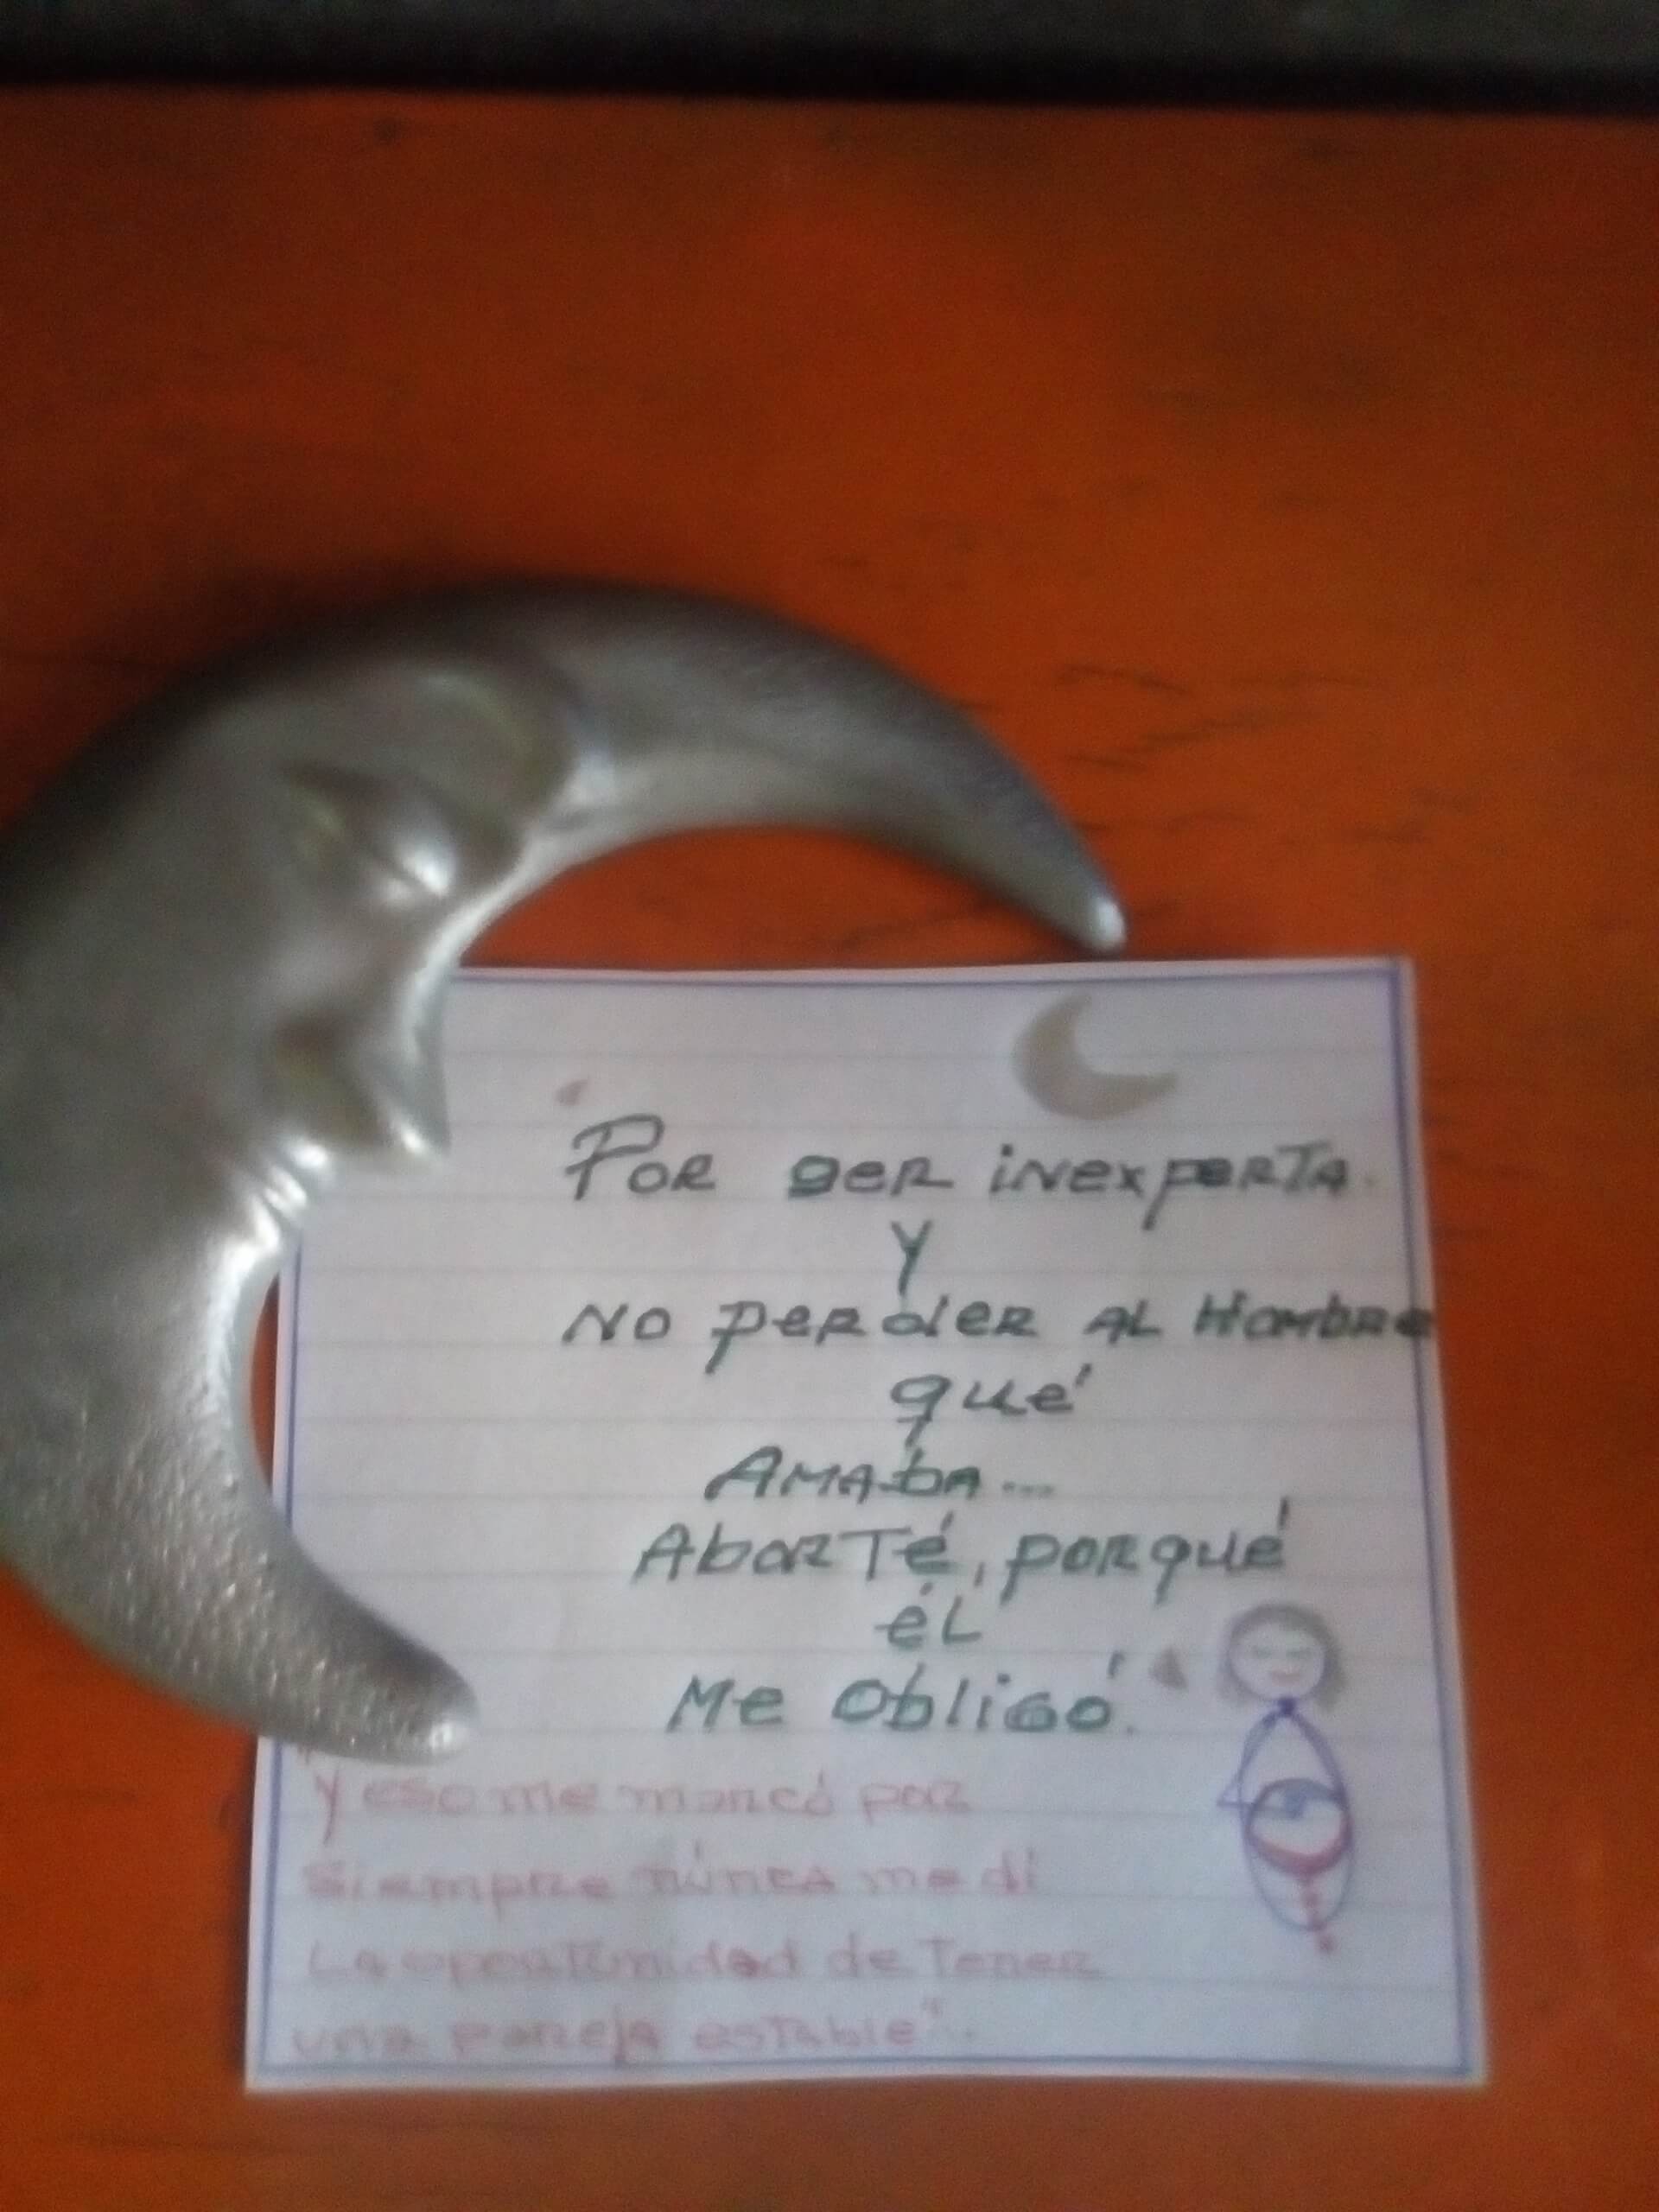 "Por ser inexperta.
Y
NO perder AL Hombre
qué
AMABA...
AborTé, porqué
éL
Me Obligó."
Y eso me marcó por
siempre núnca me dí
La oportunidad de Tener
una pareja esTable"...